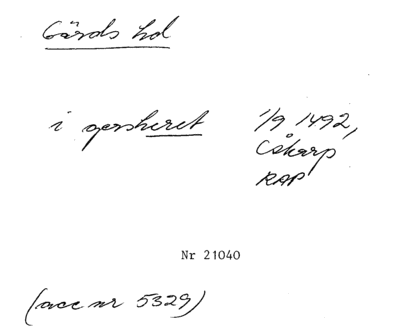 Gärds hd
i gersheret 1/9 1492,
Åkarp
RAP
Nr 21040
(acc nr 5329)